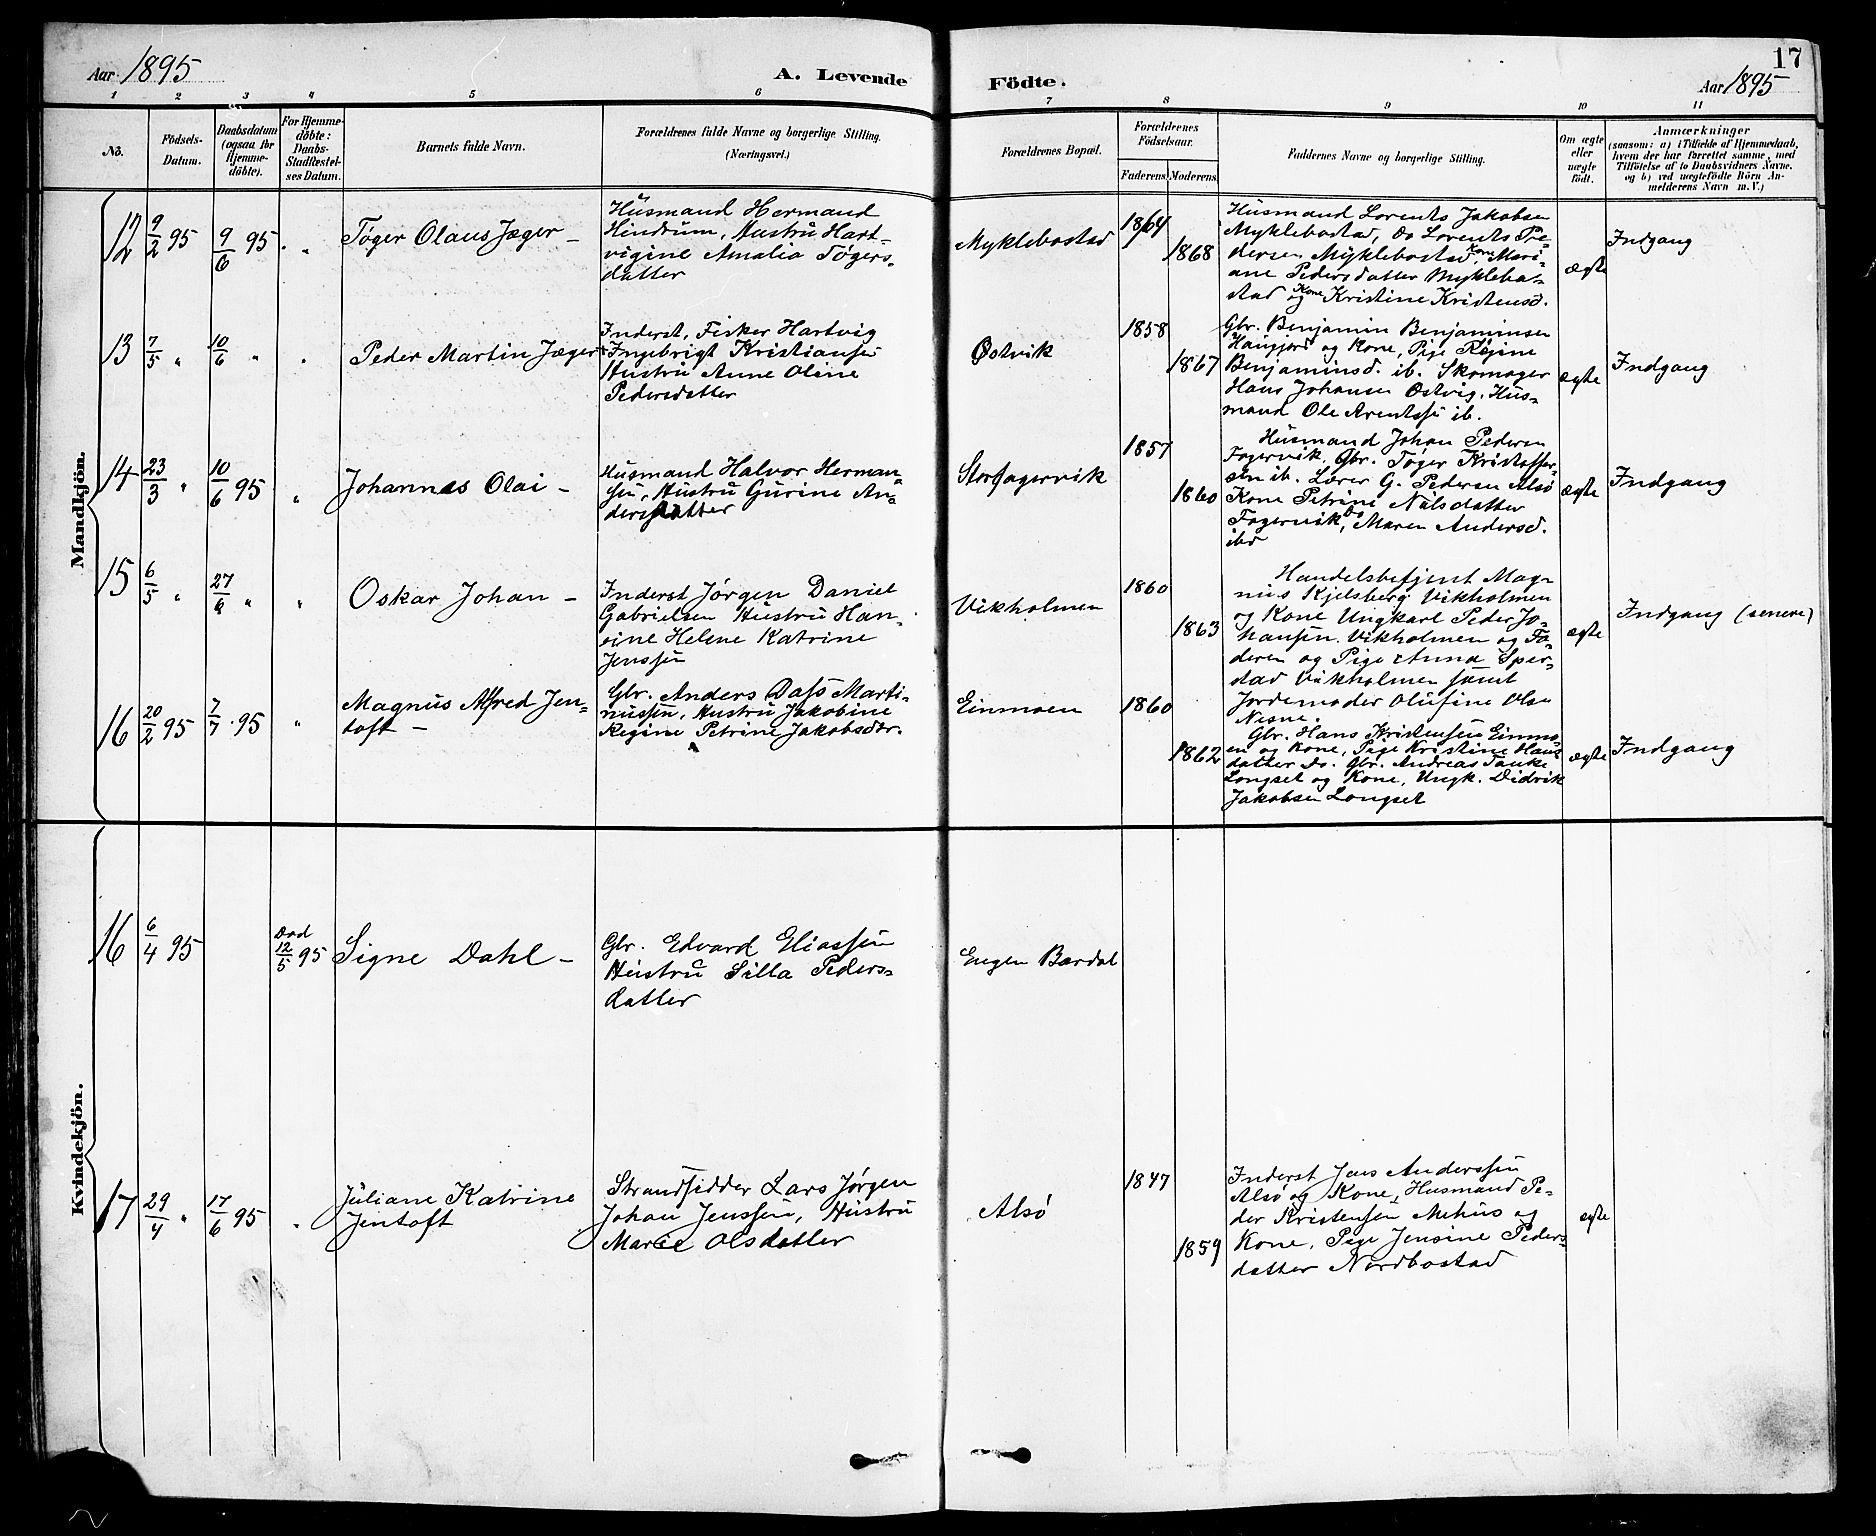 Aar 1895
A. Levende
Födte.
17
Aar 1895
1 2 3 4 5 6 7 8 9 10 11
Nö.
Födsels-
Datum.
Daabsdatum
(ogsaa for
Hjemme-
döbte).
For Hjemme-
döbte:
Daabs-
Stadfæstel-
ses Datum.
Barnets fulde Navn.
Forældrenes fulde Navne og borgerlige Stilling.
(Næringsvei.)
Forældrenes Bopæl.
Forældrenes
Födselsaar.
Faderens.
Moderens.
Faddernes Navne og borgerlige Stilling.
Om ægte
eller
uægte
födt.
Anmærkninger
(saasom: a) i Tilfælde af Hjemmedaab,
hvem der har forrettet samme, med
Tilföielse af to Daabsvidners Navne.
og b) ved uægtefödte Börn An-
melderens Navn m. V.)
Mandkjön.
12
9/2 95
9/6 95.
"
Tøger Olaus Jæger –
Husmand Hermand
Hindrum, Hustru Hart-
vigine Amalia Tøgers-
datter
Myklebostad
1864
1868
Husmand Lorents Jakobsen
Myklebostad, Do Lorents Pe-
dersen Myklebostad Kone Mari-
ane Pedersdatter Mykleba-
stad og Kone Kristine Kristensd.
ægte
Indgang
13
7/5 "
10/6 "
"
Peder Martin Jæger
Inderst, Fisker Hartvig
Ingebrigt Kristiansen
Hustru Anne Oline
Pedersdatter
Østvik
1858
1867
Gbr. Benjamin Benjaminsen
Haugjord og Kone, Pige Regine
Benjaminsd. ib. Skomager
Hans Johansen Østvig, Hus-
mand Ole Arentssen ib.
ægte
Indgang
14
23/3 "
10/6 95
"
Johannes Olai –
Husmand Halvor Herman-
sen, Hustru Gurine An-
dersdatter
Storfagervik
1857
1860
Husmand Johan Pedersen
Fagervik, Gbr. Tøger Kristoffer-
sen ib. Lærer G. Pedersen Alsø
Kone Petrine Nilsdatter
Fagervik, Do Maren Andersd.
ibd
ægte
Indgang
15
6/5 "
27/6 "
"
Oskar Johan –
Inderst Jørgen Daniel
Gabrielsen Hustru Han-
sine Helene Katrine
Jenssen
Vikholmen
1860
1863
Handelsbetjent Mag-
nus Kjelsberg Vikholmen
og Kone Ungkarl Peder Jo-
hansen Vikholmen og Fa-
deren og Pige Anna Sper-
stad Vikholmen samt
Jordemoder Olufine Olsen
Nesne.
ægte
Indgang (senere)
16
20/2 95
7/7 . 95
"
Magnus Alfred Jen-
toft –
Gbr. Anders Dass Marti-
nussen, Hustru Jakobine
Regine Petrine Jakobsdtr.
Einmoen
1860
1862
Gbr. Hans Kristensen Einmo-
en og Kone, Pige Kristine Hans-
datter Do. Gbr. Andreas Tanke
Longset og Kone, Ungk. Didrik
Jakobsen Longset
ægte
Indgang
Kvindekjön.
16
6/4 95
Død
12/5 95
Signe Dahl –
Gbr. Edvard Eliassen
Hustru Silla Peders-
datter
Engen Bardal
17
29/4 "
17/6 95
"
Juliane Katrine
Jentoft
Strandsidder Lars Jørgen
Johan Jenssen, Hustru
Marie Olsdatter
Alsø
1847
1859
Inderst Jens Anderssen
Alsø og Kone, Husmand Pe-
der Kristensen Mehus og
Kone, Pige Jensine Peders-
datter Nordbostad
ægte